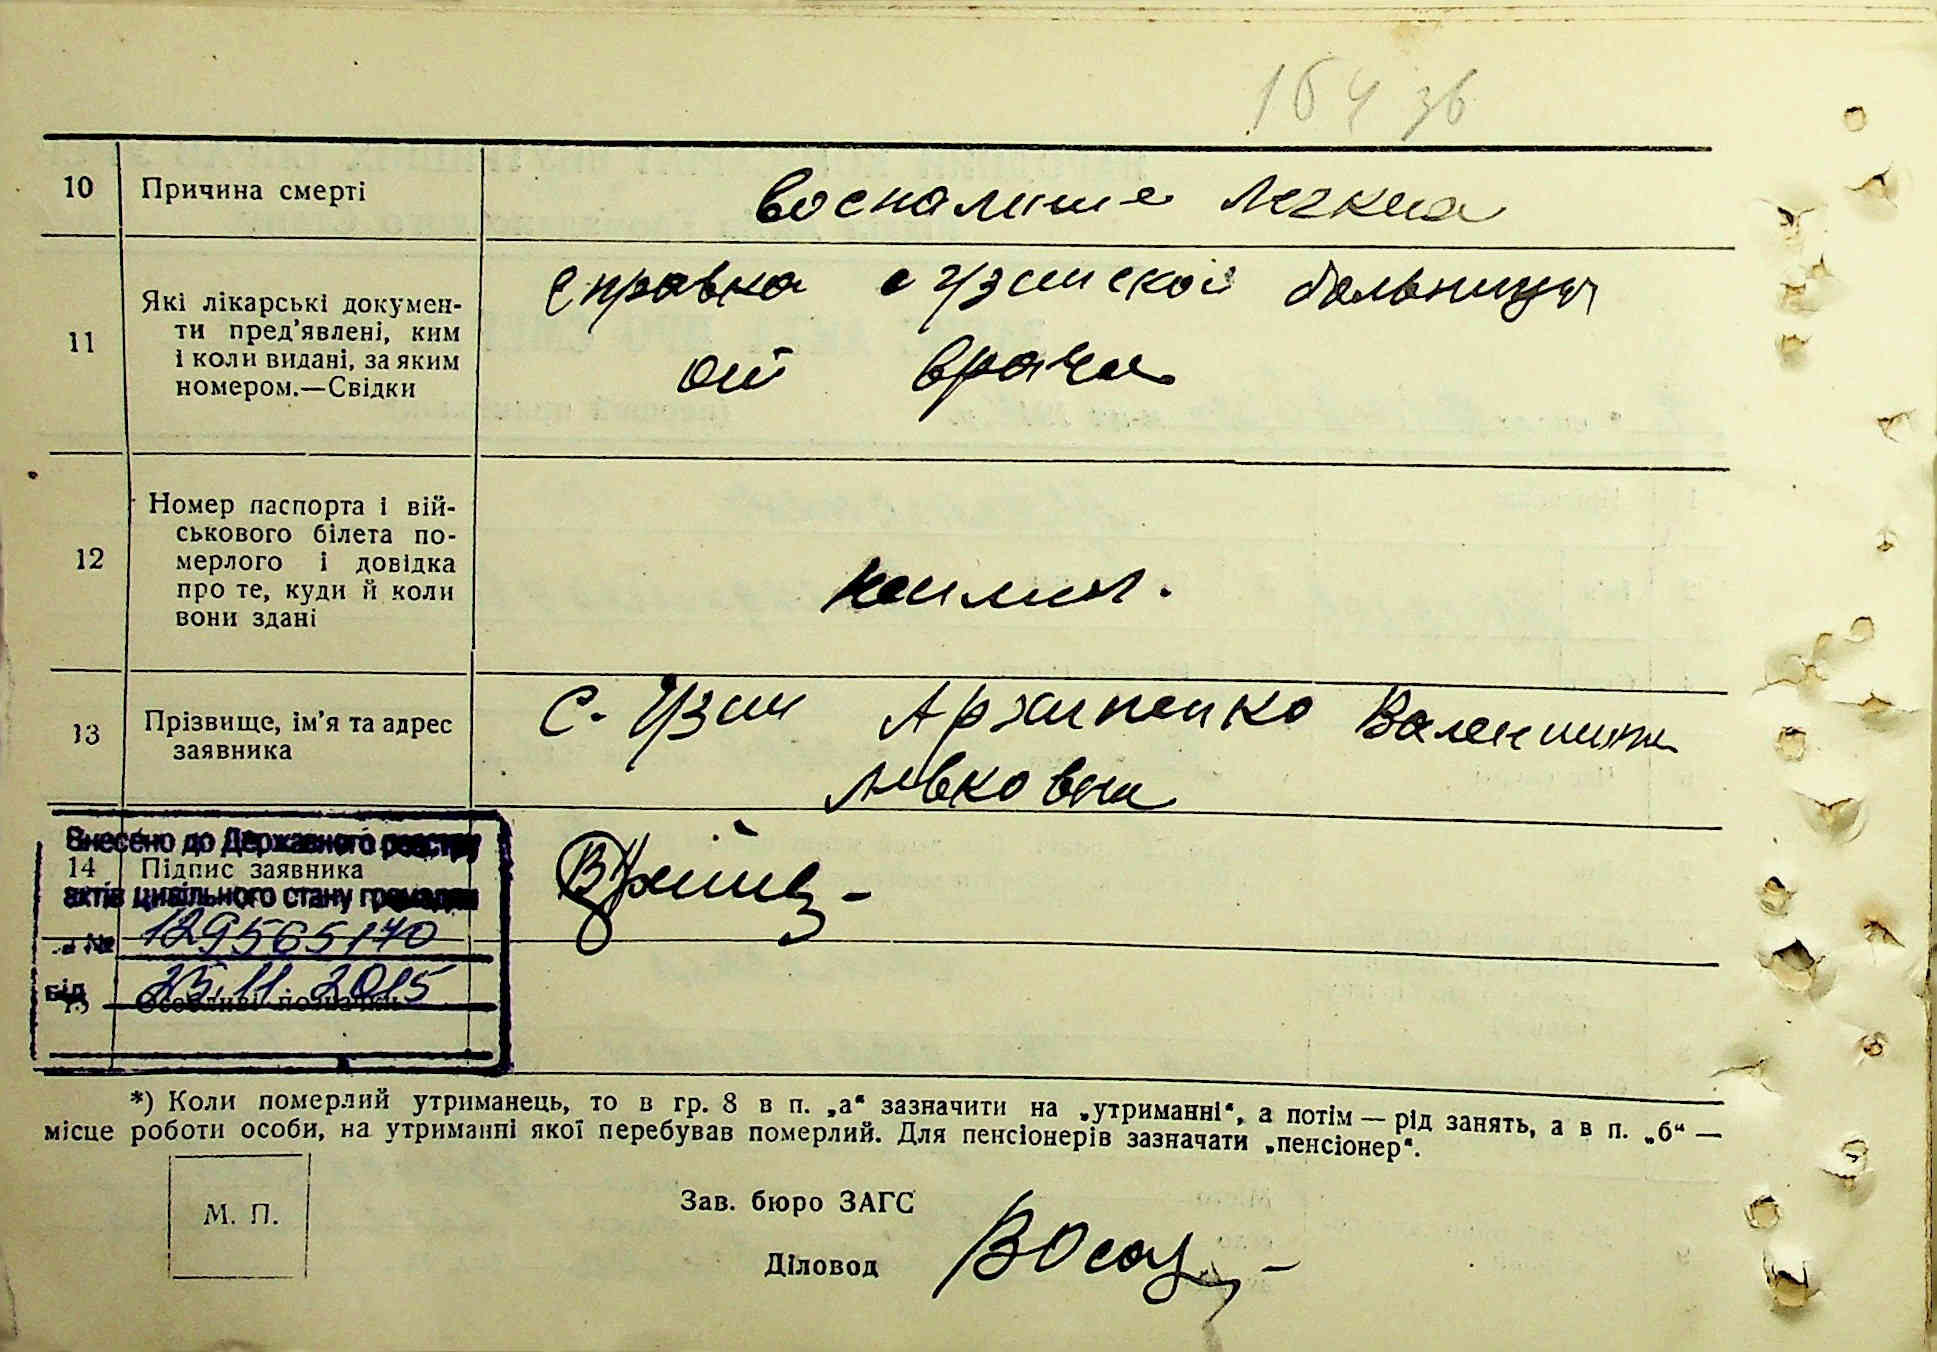 164 зв
10 Причина смерті воспаление легких
11 Які лікарські докумен-
ти пред'явлені, ким
і коли видані, за яким
номером.—Свідки
справка с Узинской больницы
от врача
12 Номер паспорта і вій-
ськового білета по-
мерлого і довідка
про те, куди й коли
вони здані
13 Прізвище, ім'я та адрес
заявника
с. Узин Архипенко Валентина
Левковна
Внесено до Державного реєстру
14 Підпис заявника
актів цивільного стану громадян
№ 129565140
від 25.11.2015
15 Особливі позначки
*) Коли померлий утриманець, то в гр. 8 в п. „а“ зазначити на „утриманні“, а потім — рід занять, а в п. „б“ —
місце роботи особи, на утриманні якої перебував померлий. Для пенсіонерів зазначати „пенсіонер“.
М. П.
Зав. бюро ЗАГС
Діловод